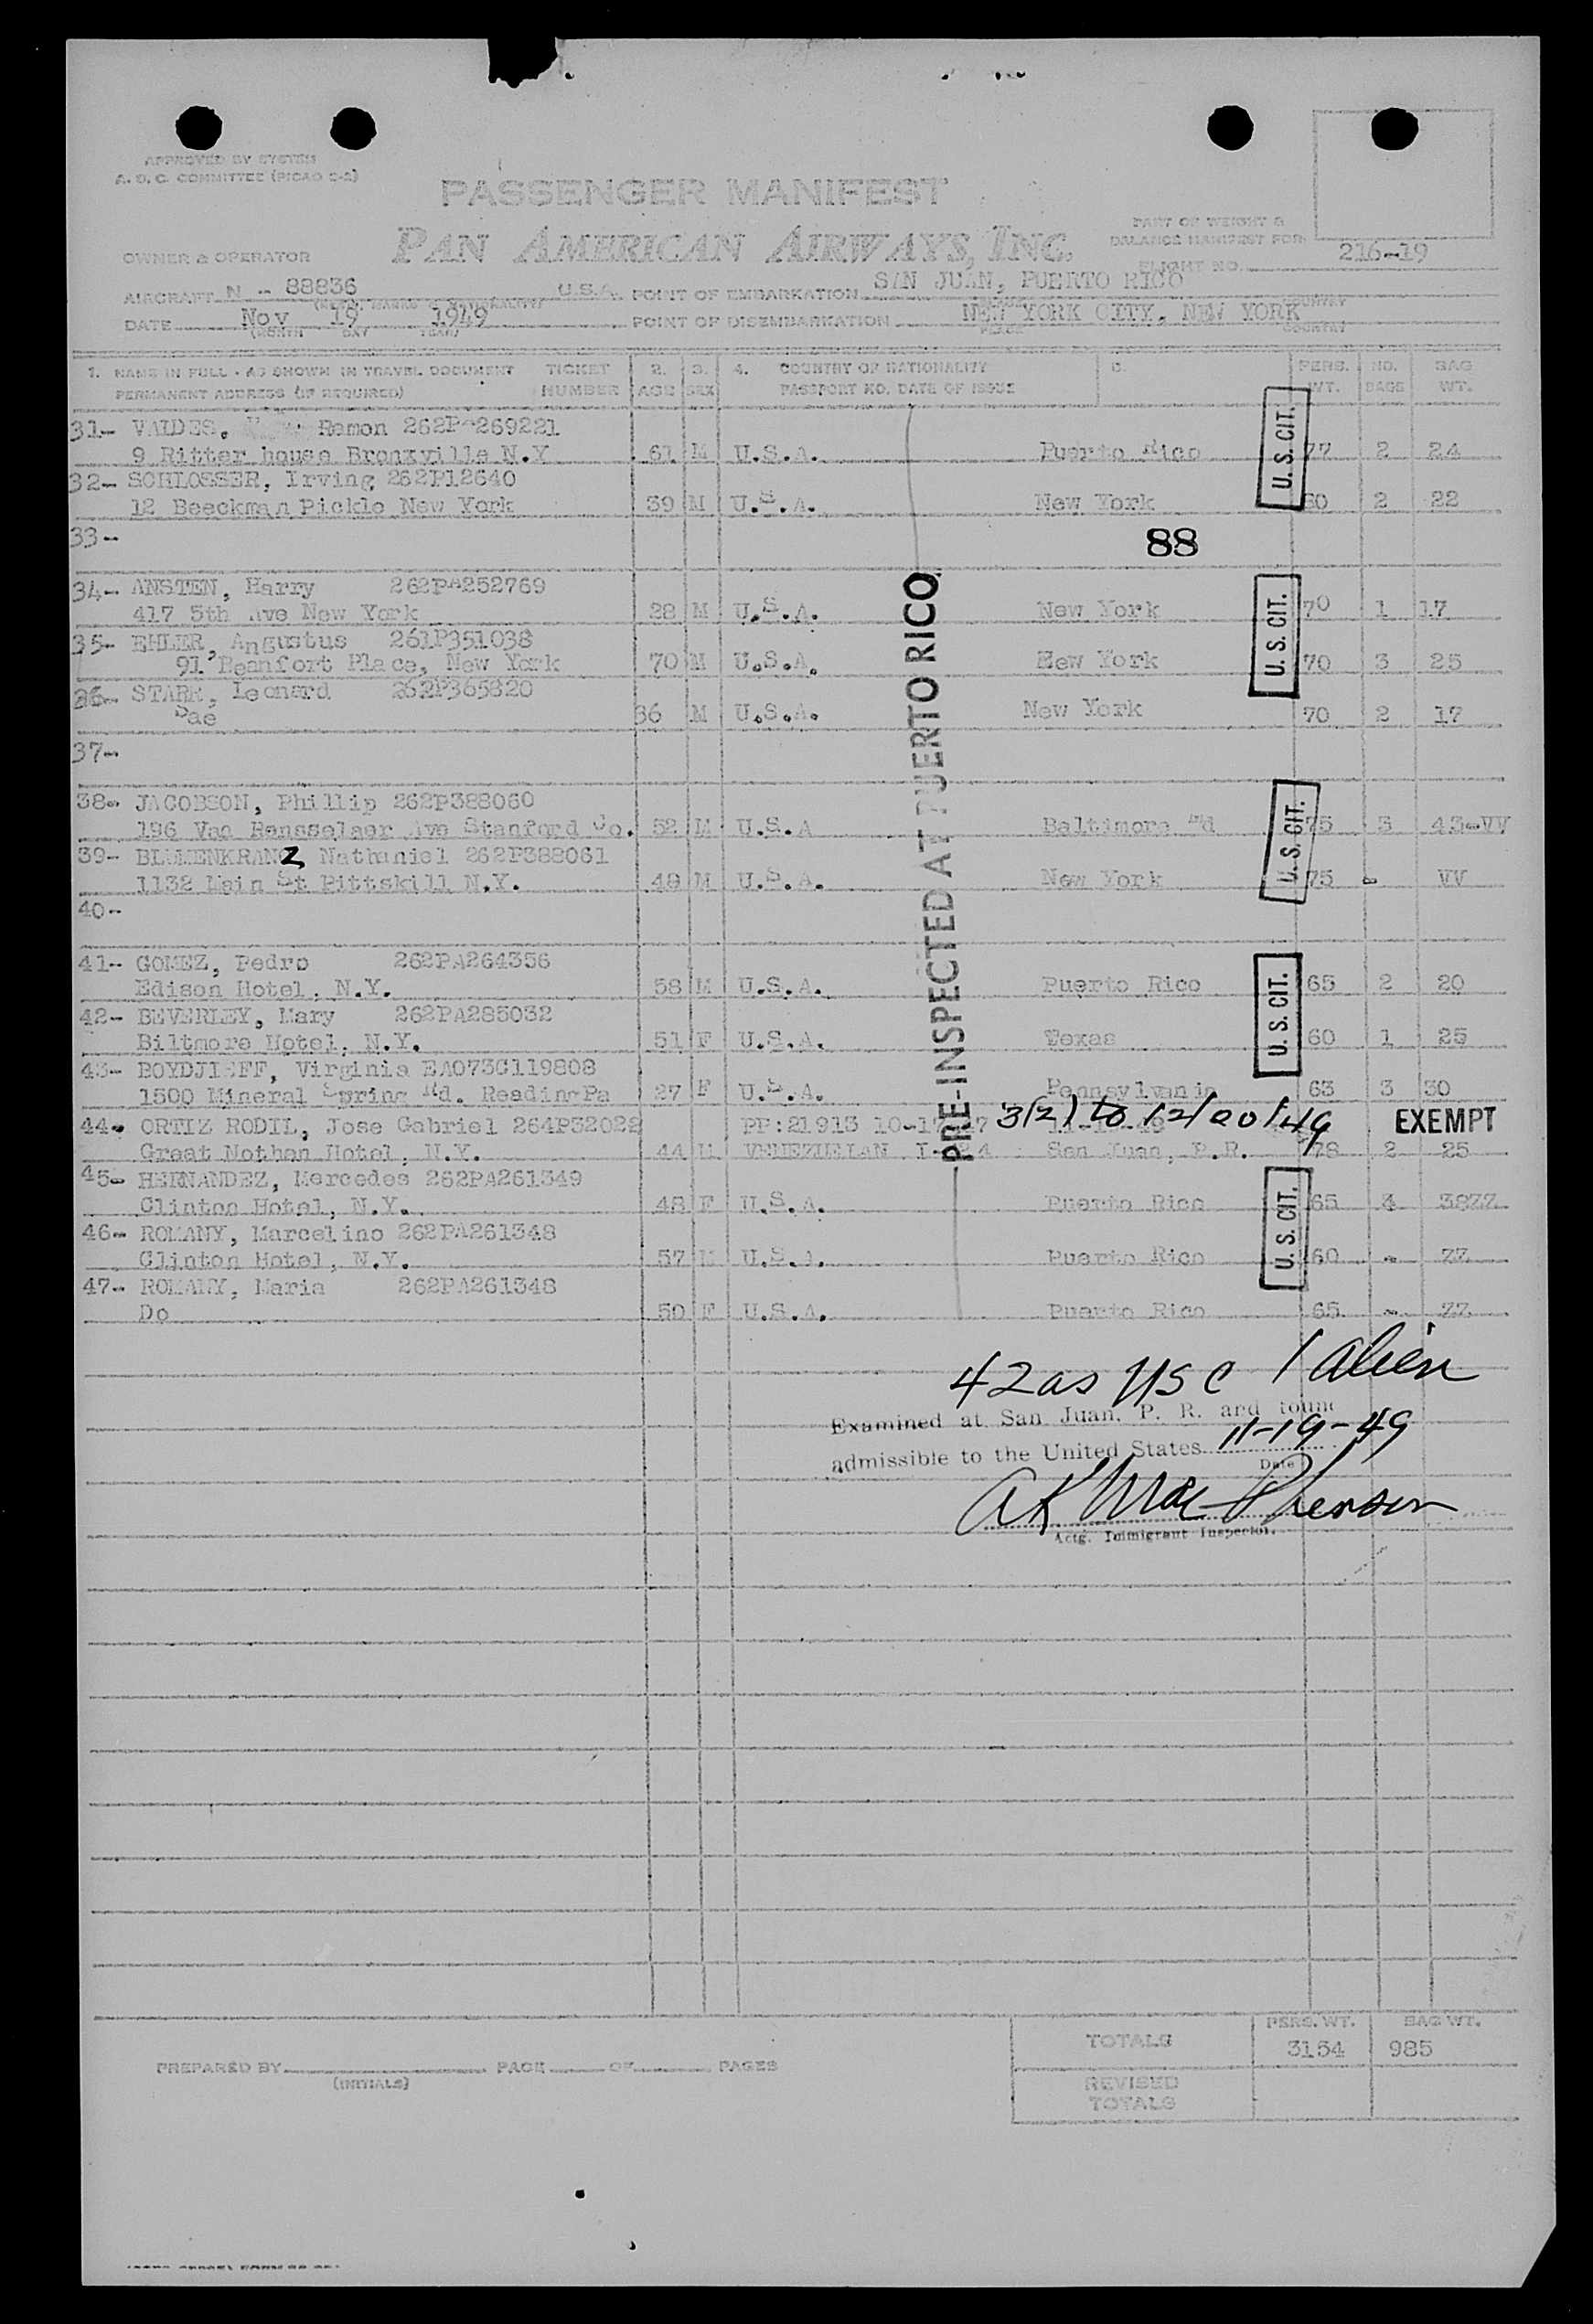 APPROVED BY SYSTEM
A. O. C. COMMITTEE (PICAO 2-2)
PASSENGER MANIFEST
PAN AMERICAN AIRWAYS, INC.
PART OF WEIGHT &
BALANCE MANIFEST FOR
OWNER & OPERATOR
FLIGHT NO. 216-19
AIRCRAFT N - 88836 U.S.A. POINT OF EMBARKATION SAN JUAN, PUERTO RICO
DATE Nov 19 1949 POINT OF DISEMBARKATION NEW YORK CITY, NEW YORK
(MONTH DAY YEAR) PLACE COUNTRY
1. NAME IN FULL - AS SHOWN IN TRAVEL DOCUMENT TICKET 2. 3. 4. COUNTRY OF NATIONALITY PERS. NO. BAG
PERMANENT ADDRESS (IF REQUIRED) NUMBER AGE SEX PASSPORT NO. DATE OF ISSUE WT. BAGS WT.
31- VALDES, Ramon 262PA269221
9 Ritter house Bronxville N.Y 61 M U.S.A. Puerto Rico 77 2 24
U. S. CIT.
32- SCHLOSSER, Irving 262P12640
12 Beeckman Pickle New York 39 M U.S.A. New York 60 2 22
33-
88
34- ANSTEN, Harry 262PA252769
417 5th Ave New York 28 M U.S.A. New York 70 1 17
35- EHLER, Angustus 261P351038
91 Beanfort Place, New York 70 M U.S.A. Eew York 70 3 25
U. S. CIT.
36- STARR, Leonard 262P365820
Dae 36 M U.S.A. New York 70 2 17
37-
38- JACOBSON, Phillip 262P388060
196 Van Rensselaer Ave Stanford Co. 52 M U.S.A Baltimore Md 75 3 43-VV
U. S. CIT.
39- BLUMENKRANZ, Nathaniel 262P388061
1132 Main St Pittskill N.Y. 48 M U.S.A. New York 75 - VV
40-
PRE-INSPECTED AT PUERTO RICO
41- GOMEZ, Pedro 262PA264356
Edison Hotel, N.Y. 58 M U.S.A. Puerto Rico 65 2 20
U. S. CIT.
42- BEVERLEY, Mary 262PA285032
Biltmore Hotel, N.Y. 51 F U.S.A. Texas 60 1 25
43- BOYDJIEFF, Virginia EA073C119808
1500 Mineral Spring Rd. Reading Pa 27 F U.S.A. Pennsylvania 63 3 30
44- ORTIZ RODIL, Jose Gabriel 264P32022 PP:21913 3(2) to 12/20/49 EXEMPT
Great Nothen Hotel, N.Y. 44 M VENEZUELAN San Juan, P.R. 78 2 25
45- HERNANDEZ, Mercedes 262PA261349
Clinton Hotel, N.Y. 48 F U.S.A. Puerto Rico 65 4 38ZZ
U. S. CIT.
46- ROMANY, Marcelino 262PA261348
Clinton Hotel, N.Y. 57 M U.S.A. Puerto Rico 60 - ZZ
47- ROMANY, Maria 262PA261348
Do 50 F U.S.A. Puerto Rico 65 - ZZ
42 as USC 1 alien
Examined at San Juan, P. R. and found
admissible to the United States 11-19-49
Date
AK MacPherson
Actg. Immigrant Inspector.
TOTALS PERS. WT. 3154 BAG WT. 985
PREPARED BY PAGE OF PAGES
(INITIALS)
REVISED
TOTALS